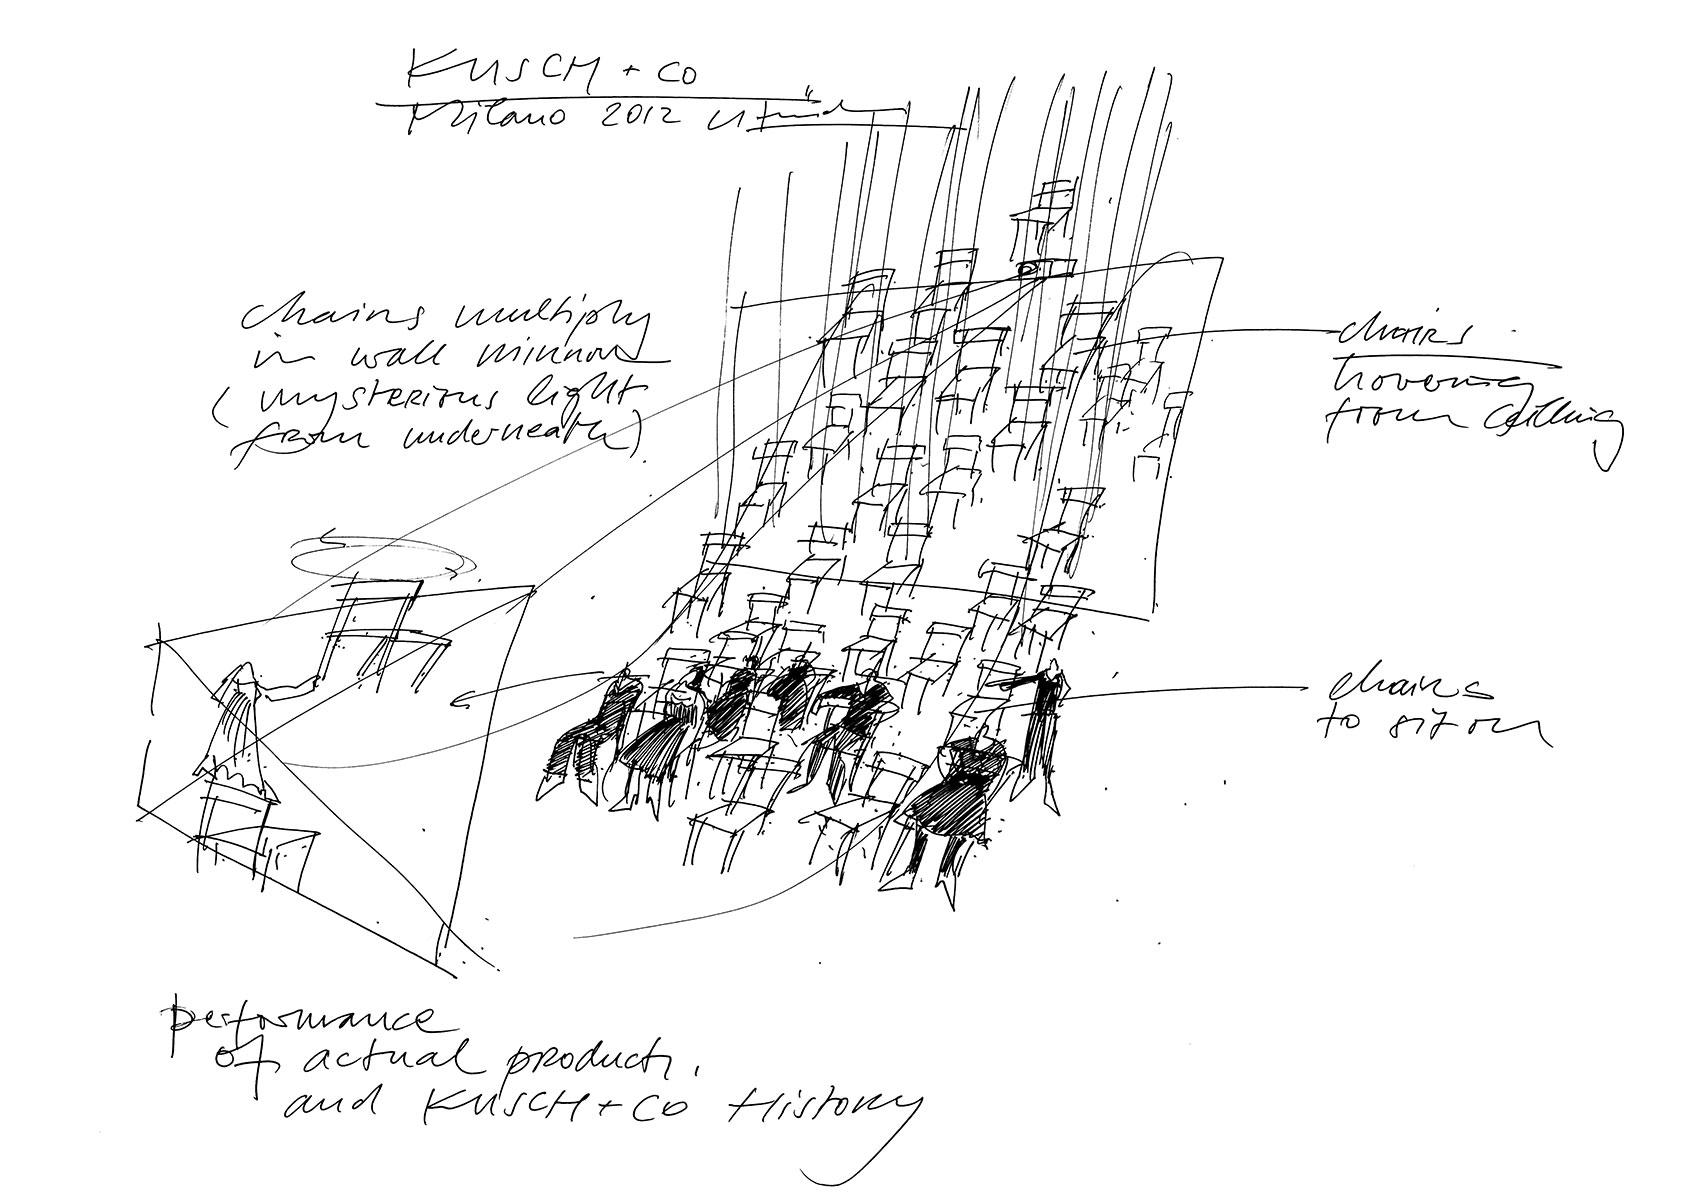 KUSCH + CO
Milano 2012
chairs multiply
in wall mirrors
(mysterious light
from underneath)
chairs
hovering
from ceiling
chairs
to sit on
performance
of actual products,
and KUSCH+CO History